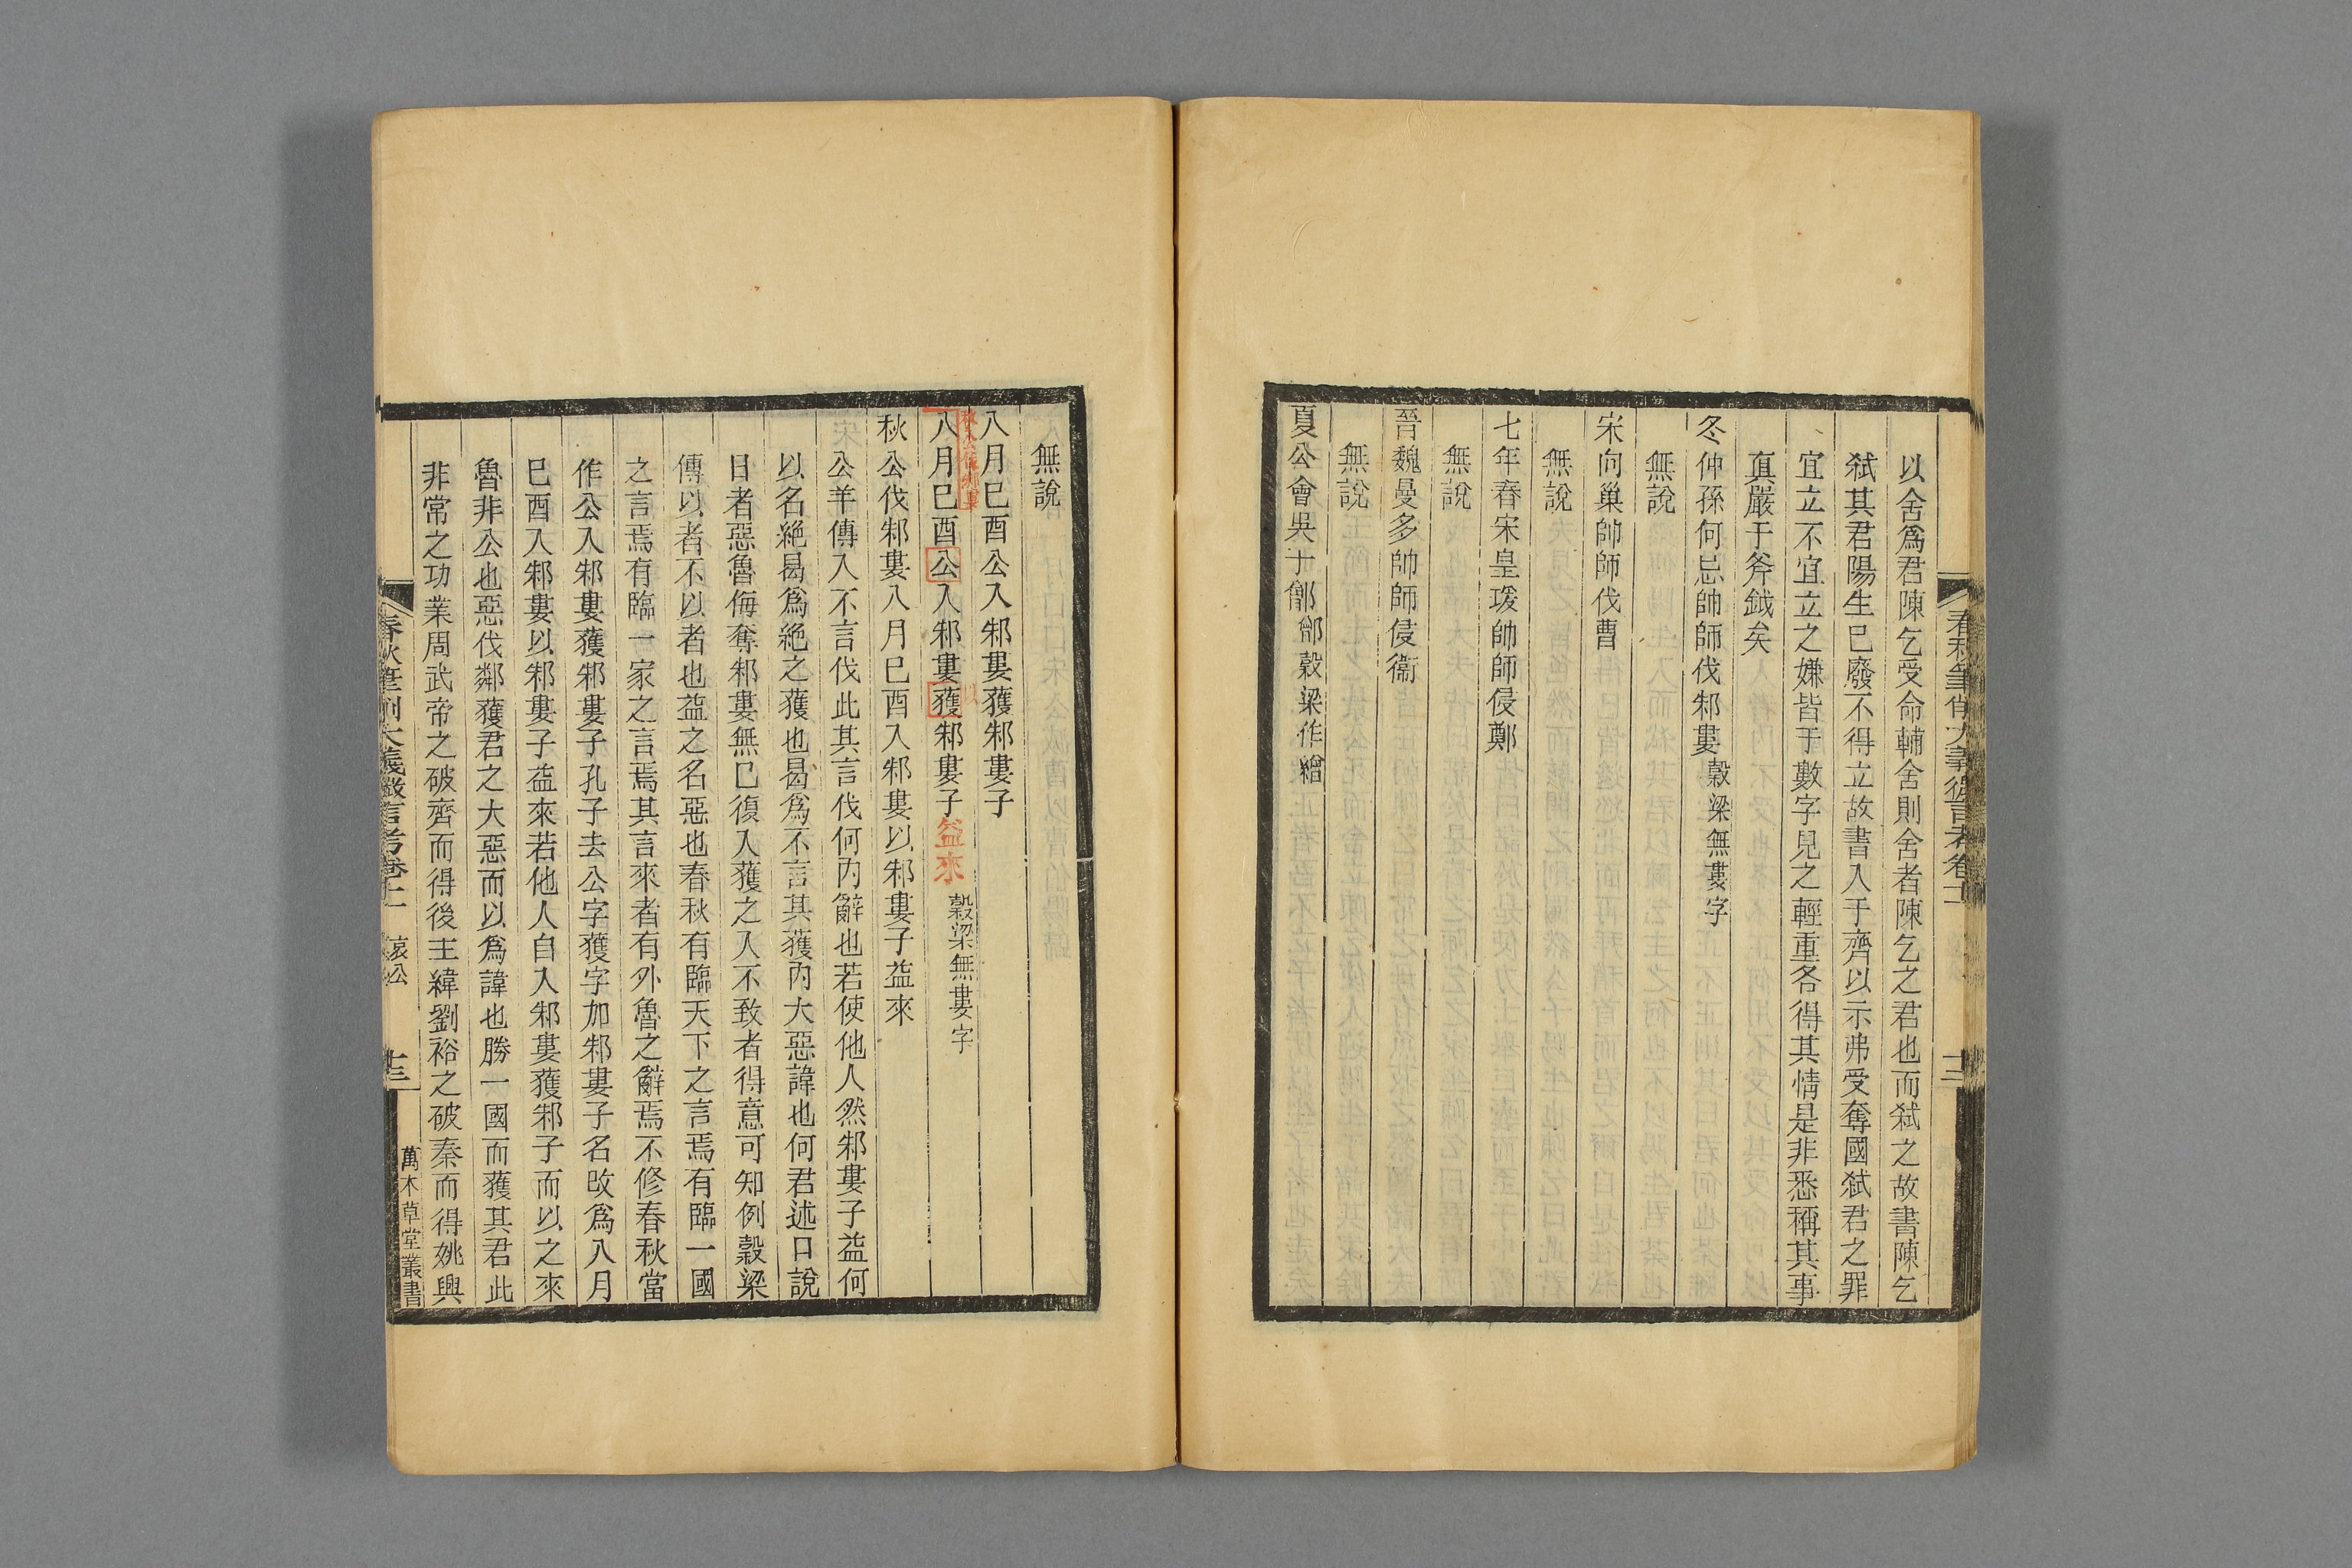 春秋筆削大義微言考卷十一 十二
以舍爲君陳乞受命輔舍則舍者陳乞之君也而弑之故書陳乞
弑其君陽生已廢不得立故書入于齊以示弗受奪國弑君之罪
宜立不宜立之嫌皆于數字見之輕重各得其情是非悉稱其事
眞嚴于斧鉞矣
冬仲孫何忌帥師伐邾婁穀梁無婁字
無說
宋向巢帥師伐曹
無說
七年春宋皇瑗帥師侵鄭
無說
晉魏曼多帥師侵衞
無說
夏公會吳于鄫鄫穀梁作繒
無說
八月巳酉公入邾婁獲邾婁子
秋公伐邾婁
八月巳酉公入邾婁獲邾婁子益來穀梁無婁字
以
秋公伐邾婁八月巳酉入邾婁以邾婁子益來
公羊傳入不言伐此其言伐何內辭也若使他人然邾婁子益何
以名絕曷爲絕之獲也曷爲不言其獲內大惡諱也何君述口說
日者惡魯侮奪邾婁無已復入獲之入不致者得意可知例穀梁
傳以者不以者也益之名惡也春秋有臨天下之言焉有臨一國
之言焉有臨一家之言焉其言來者有外魯之辭焉不修春秋當
作公入邾婁獲邾婁子孔子去公字獲字加邾婁子名改爲八月
巳酉入邾婁以邾婁子益來若他人自入邾婁獲邾子而以之來
魯非公也惡伐鄰獲君之大惡而以爲諱也勝一國而獲其君此
非常之功業周武帝之破齊而得後主緯劉裕之破秦而得姚興
春秋筆削大義微言考卷十一 哀公 十三 萬木草堂叢書